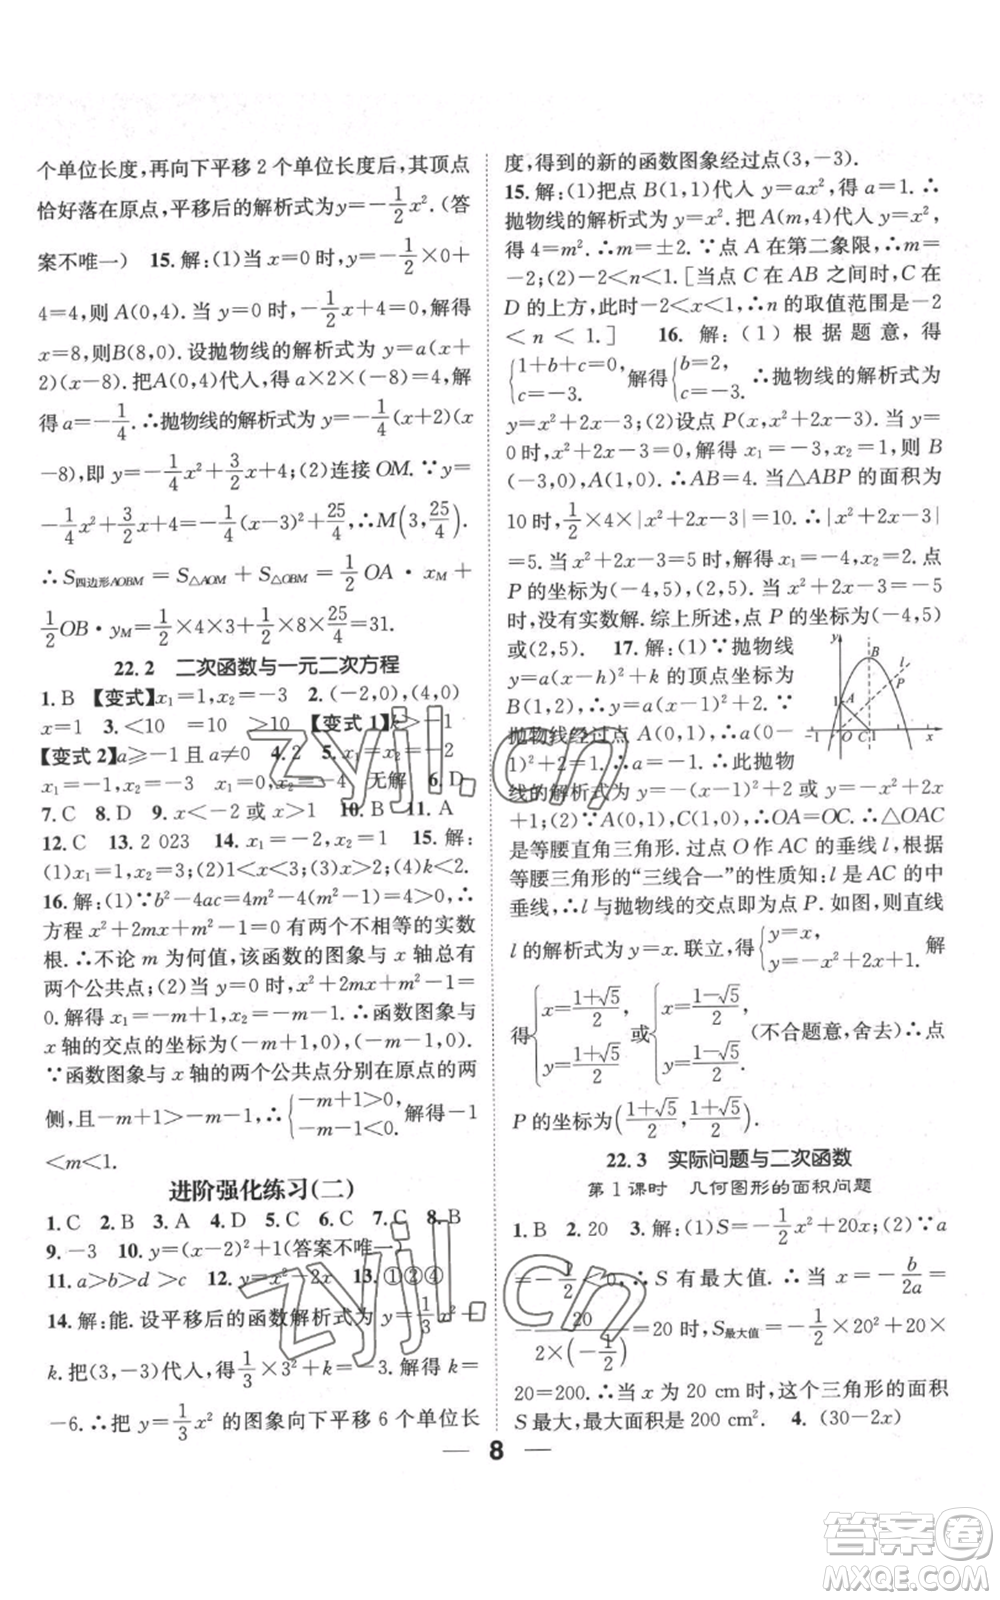 个单位长度,再向下平移 2 个单位长度后,其顶点
恰好落在原点,平移后的解析式为y=-1/2x².(答
案不唯一) 15.解:(1)当 x=0 时,y=-1/2×0+
4=4,则 A(0,4).当 y=0 时,-1/2x+4=0,解得
x=8,则B(8,0).设抛物线的解析式为y=a(x+
2)(x-8).把A(0,4)代人,得 a×2×(-8)=4,解
得a=-1/4.∴抛物线的解析式为y=-1/4(x+2)(x
-8),即 y=-1/4x²+3/2x+4;(2)连接 OM.∵y=
-1/4x²+3/2x+4=-1/4(x-3)²+25/4,∴M(3,25/4).
∴S四边形AOBM=S△AOM+S△OBM=1/2OA·xM+
1/2OB·yM=1/2×4×3+1/2×8×25/4=31.
22.2 二次函数与一元二次方程
1.B 【变式】x₁=1,x₂=-3 2.(-2,0),(4,0)
x=1 3.<10 =10 >10 【变式 1】k>-1
【变式 2】a≥-1 且 a≠0 4.2 5.x₁=x₂=-2
x₁=-1,x₂=-2 x₁=0,x₂=-4 无解 6.D
7.C 8.D 9.x<-2 或 x>1 10.B 11.A
12.C 13.2 023 14.x₁=-2,x₂=1 15.解:
(1)x₁=1,x₂=3;(2)1<x<3;(3)x>2;(4)k<2.
16.解:(1)∵b²-4ac=4m²-4(m²-1)=4>0,∴
方程 x²+2mx+m²-1=0 有两个不相等的实数
根.∴不论 m 为何值,该函数的图象与 x 轴总有
两个公共点;(2)当 y=0 时,x²+2mx+m²-1=
0.解得 x₁=-m+1,x₂=-m-1.∴函数图象与
x 轴的交点的坐标为(-m+1,0),(-m-1,0).
∵函数图象与 x 轴的两个公共点分别在原点的两
侧,且-m+1>-m-1,∴{-m+1>0, -m-1<0. 解得-1
<m<1.
进阶强化练习(二)
1.C 2.B 3.A 4.D 5.C 6.C 7.C 8.B
9.-3 10.y=(x-2)²+1(答案不唯一)
11.a>b>d>c 12.y=x²-2x 13.①②④
14.解:能.设平移后的函数解析式为y=1/3x²+
k.把(3,-3)代人,得1/3×3²+k=-3.解得 k=
-6.∴把 y=1/3x² 的图象向下平移 6 个单位长
度,得到的新的函数图象经过点(3,-3).
15.解:(1)把点 B(1,1)代人 y=ax²,得 a=1.∴
抛物线的解析式为 y=x².把 A(m,4)代人 y=x²,
得 4=m².∴m=±2.∵点 A 在第二象限,∴m=
-2;(2)-2<n<1.[当点 C 在 AB 之间时,C 在
D 的上方,此时-2<x<1.∴n 的取值范围是-2
<n<1.] 16.解:(1)根据题意,得
{1+b+c=0, c=-3. 解得{b=2, c=-3. ∴抛物线的解析式为
y=x²+2x-3;(2)设点 P(x,x²+2x-3).当 y=
0 时,x²+2x-3=0,解得 x₁=-3,x₂=1.则 B
(-3,0),A(1,0).∴AB=4.当△ABP的面积为
10 时,1/2×4×|x²+2x-3|=10.∴|x²+2x-3|
=5.当 x²+2x-3=5时,解得 x₁=-4,x₂=2.点
P 的坐标为(-4,5),(2,5).当 x²+2x-3=-5
时,没有实数解.综上所述,点 P 的坐标为(-4,5)
或(2,5). 17.解:(1)∵抛物线
y=a(x-h)²+k 的顶点坐标为
B(1,2),∴y=a(x-1)²+2.∵
抛物线经过点A(0,1),∴a(0-
1)²+2=1.∴a=-1.∴此抛物
线的解析式为 y=-(x-1)²+2或y=-x²+2x+
1;(2)∵A(0,1),C(1,0),∴OA=OC.∴△OAC
是等腰直角三角形.过点 O 作 AC 的垂线 l,根据
等腰三角形的“三线合一”的性质知:l 是 AC 的中
垂线,∴l 与抛物线的交点即为点 P.如图,则直线
l 的解析式为 y=x.联立,得{y=x, y=-x²+2x+1. 解
得{x=(1+√5)/2, y=(1+√5)/2 或{x=(1-√5)/2, y=(1-√5)/2 (不合题意,舍去)∴点
P 的坐标为((1+√5)/2,(1+√5)/2).
22.3 实际问题与二次函数
第 1 课时 几何图形的面积问题
1.B 2.20 3.解:(1)S=-1/2x²+20x;(2)∵a
=-1/2<0,∴S 有最大值.∴当 x=-b/2a=
-20/(2×(-1/2))=20 时,S最大值=-1/2×20²+20×
20=200.∴当 x 为 20 cm 时,这个三角形的面积
S最大,最大面积是 200 cm². 4.(30-2x)
y
B
l
P
A
-1
O
C
1
x
8
zyjl.cn
zyjl.cn
答案卷
MXQE.COM